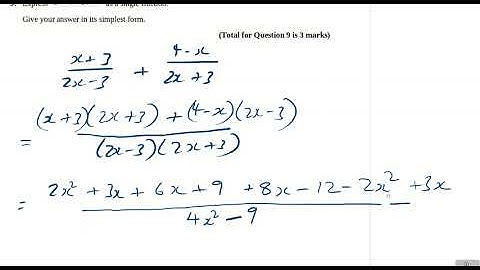 Give your answer in its simplest form.
(Total for Question 9 is 3 marks)
x+3/2x-3 + 4-x/2x+3
= (x+3)(2x+3)+(4-x)(2x-3)/(2x-3)(2x+3)
= 2x²+3x+6x+9 +8x-12-2x²+3x/4x²-9